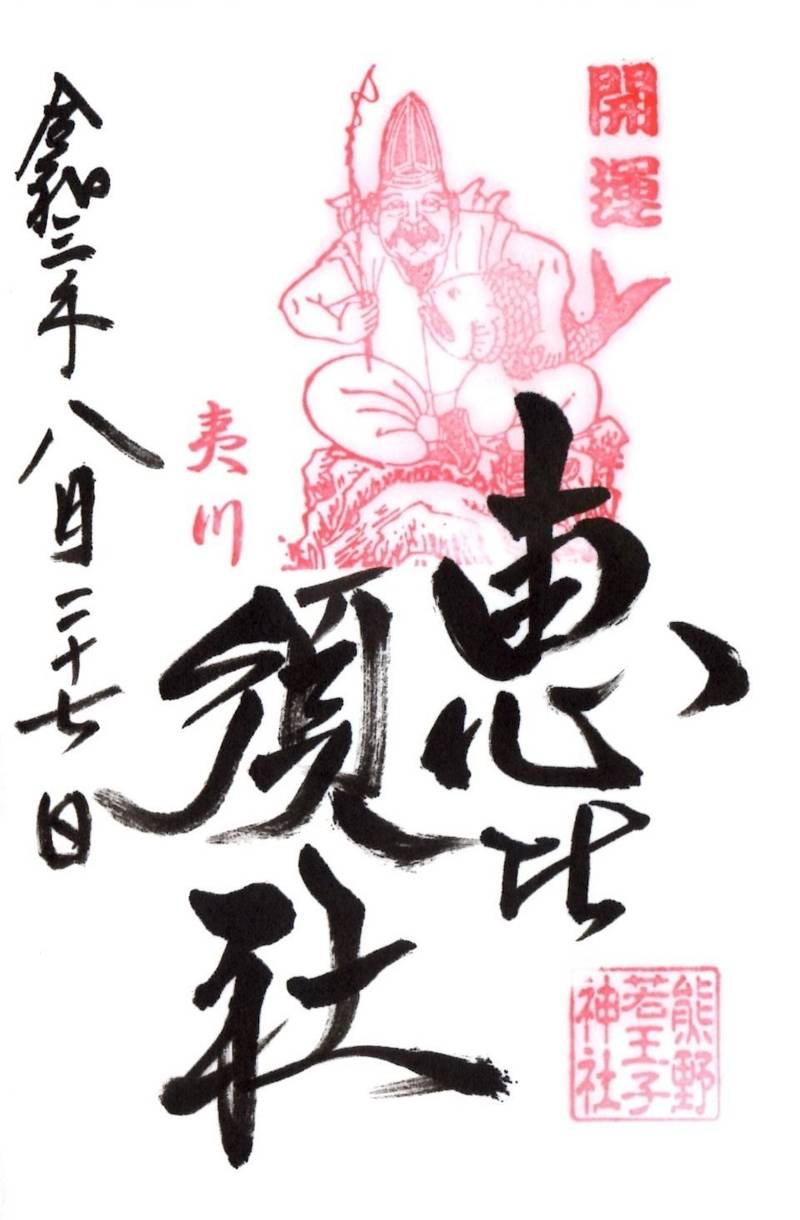 開運
恵比
須社
夷川
令和三年八月二十七日
熊野
若王子
神社